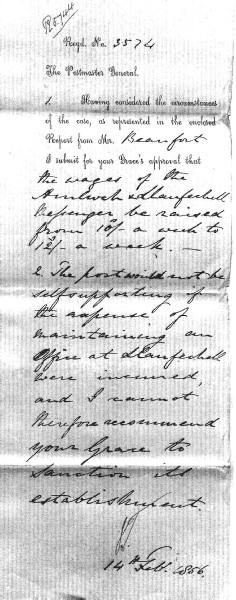 Regd. No. 3574
The Postmaster General.
1. Having considered the circumstances
of the case, as represented in the enclosed
Report from Mr. Beaufort
I submit for your Grace's approval that
the wages of the
Amlwch & Llanfechell
Messenger be raised
from 10/- a week to
12/- a week. —
2. The post would not be
self supporting if
the expense of
maintaining an
Office at Llanfechell
were incurred,
and I cannot
therefore recommend
your Grace to
sanction its
establishment.
14th Feb. 1856.